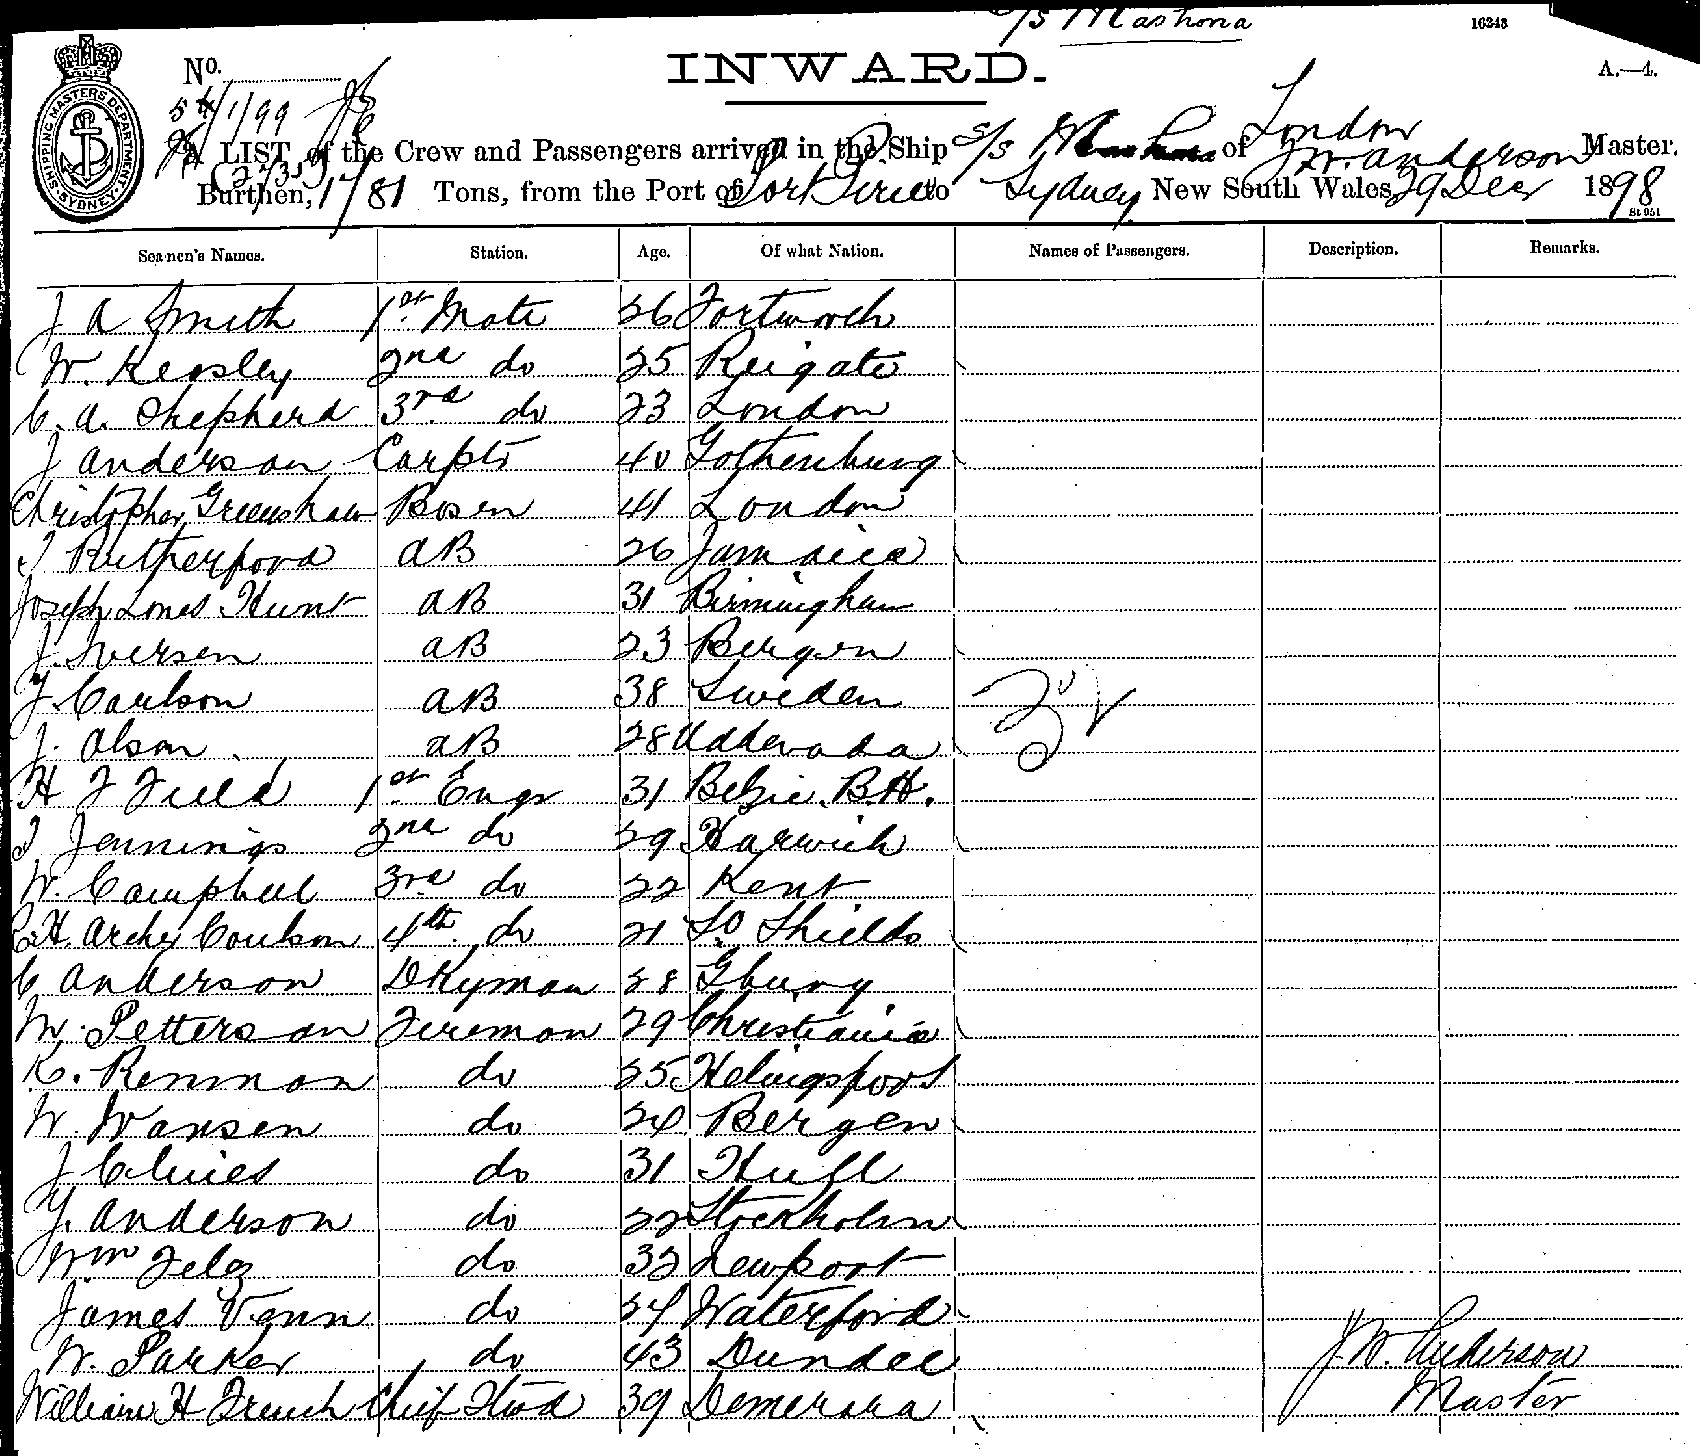 S/S Mashona
16243
INWARD.
A.—4.
No.
SHIPPING MASTERS DEPARTMENT SYDNEY
5/1/99
A LIST of the Crew and Passengers arrived in the Ship S/S of London J.W. Anderson Master.
Burthen, 1781 Tons, from the Port of Port Pirie to Sydney New South Wales, 29 Dec 1898
St 951
Seamen's Names. Station. Age. Of what Nation. Names of Passengers. Description. Remarks.
J A Smith 1st Mate 26 Fortworth
W. Kensley 2nd do 25 Reigate
C. A. Shepherd 3rd do 23 London
J Anderson Carptr 40 Gothenburg
Christopher Greenshaw Bosen 41 London
J Rutherford AB 26 Jamaica
Joseph Lones Hunt AB 31 Birmingham
J. Iversen AB 23 Bergen
J. Carlson AB 38 Sweden
J. Olson AB 28 Uddevada
H J Field 1st Engr 31 Belize B.H.
J Jennings 2nd do 29 Harwich
W. Campbell 3rd do 22 Kent
H Archer Coulson 4th do 21 So Shields
C Anderson DKyman 28 Gburg
W. Petterson Fireman 29 Christiania
K. Renman do 25 Helsingfors
W. Wansen do 24 Bergen
J Clines do 31 Hull
Y. Anderson do 22 Stockholm
Wm do 32 Newport
James Venn do 24 Waterford
W. Parker do 43 Dundee
William H French Chief Stwd 39 Demerara
J.W. Anderson
Master